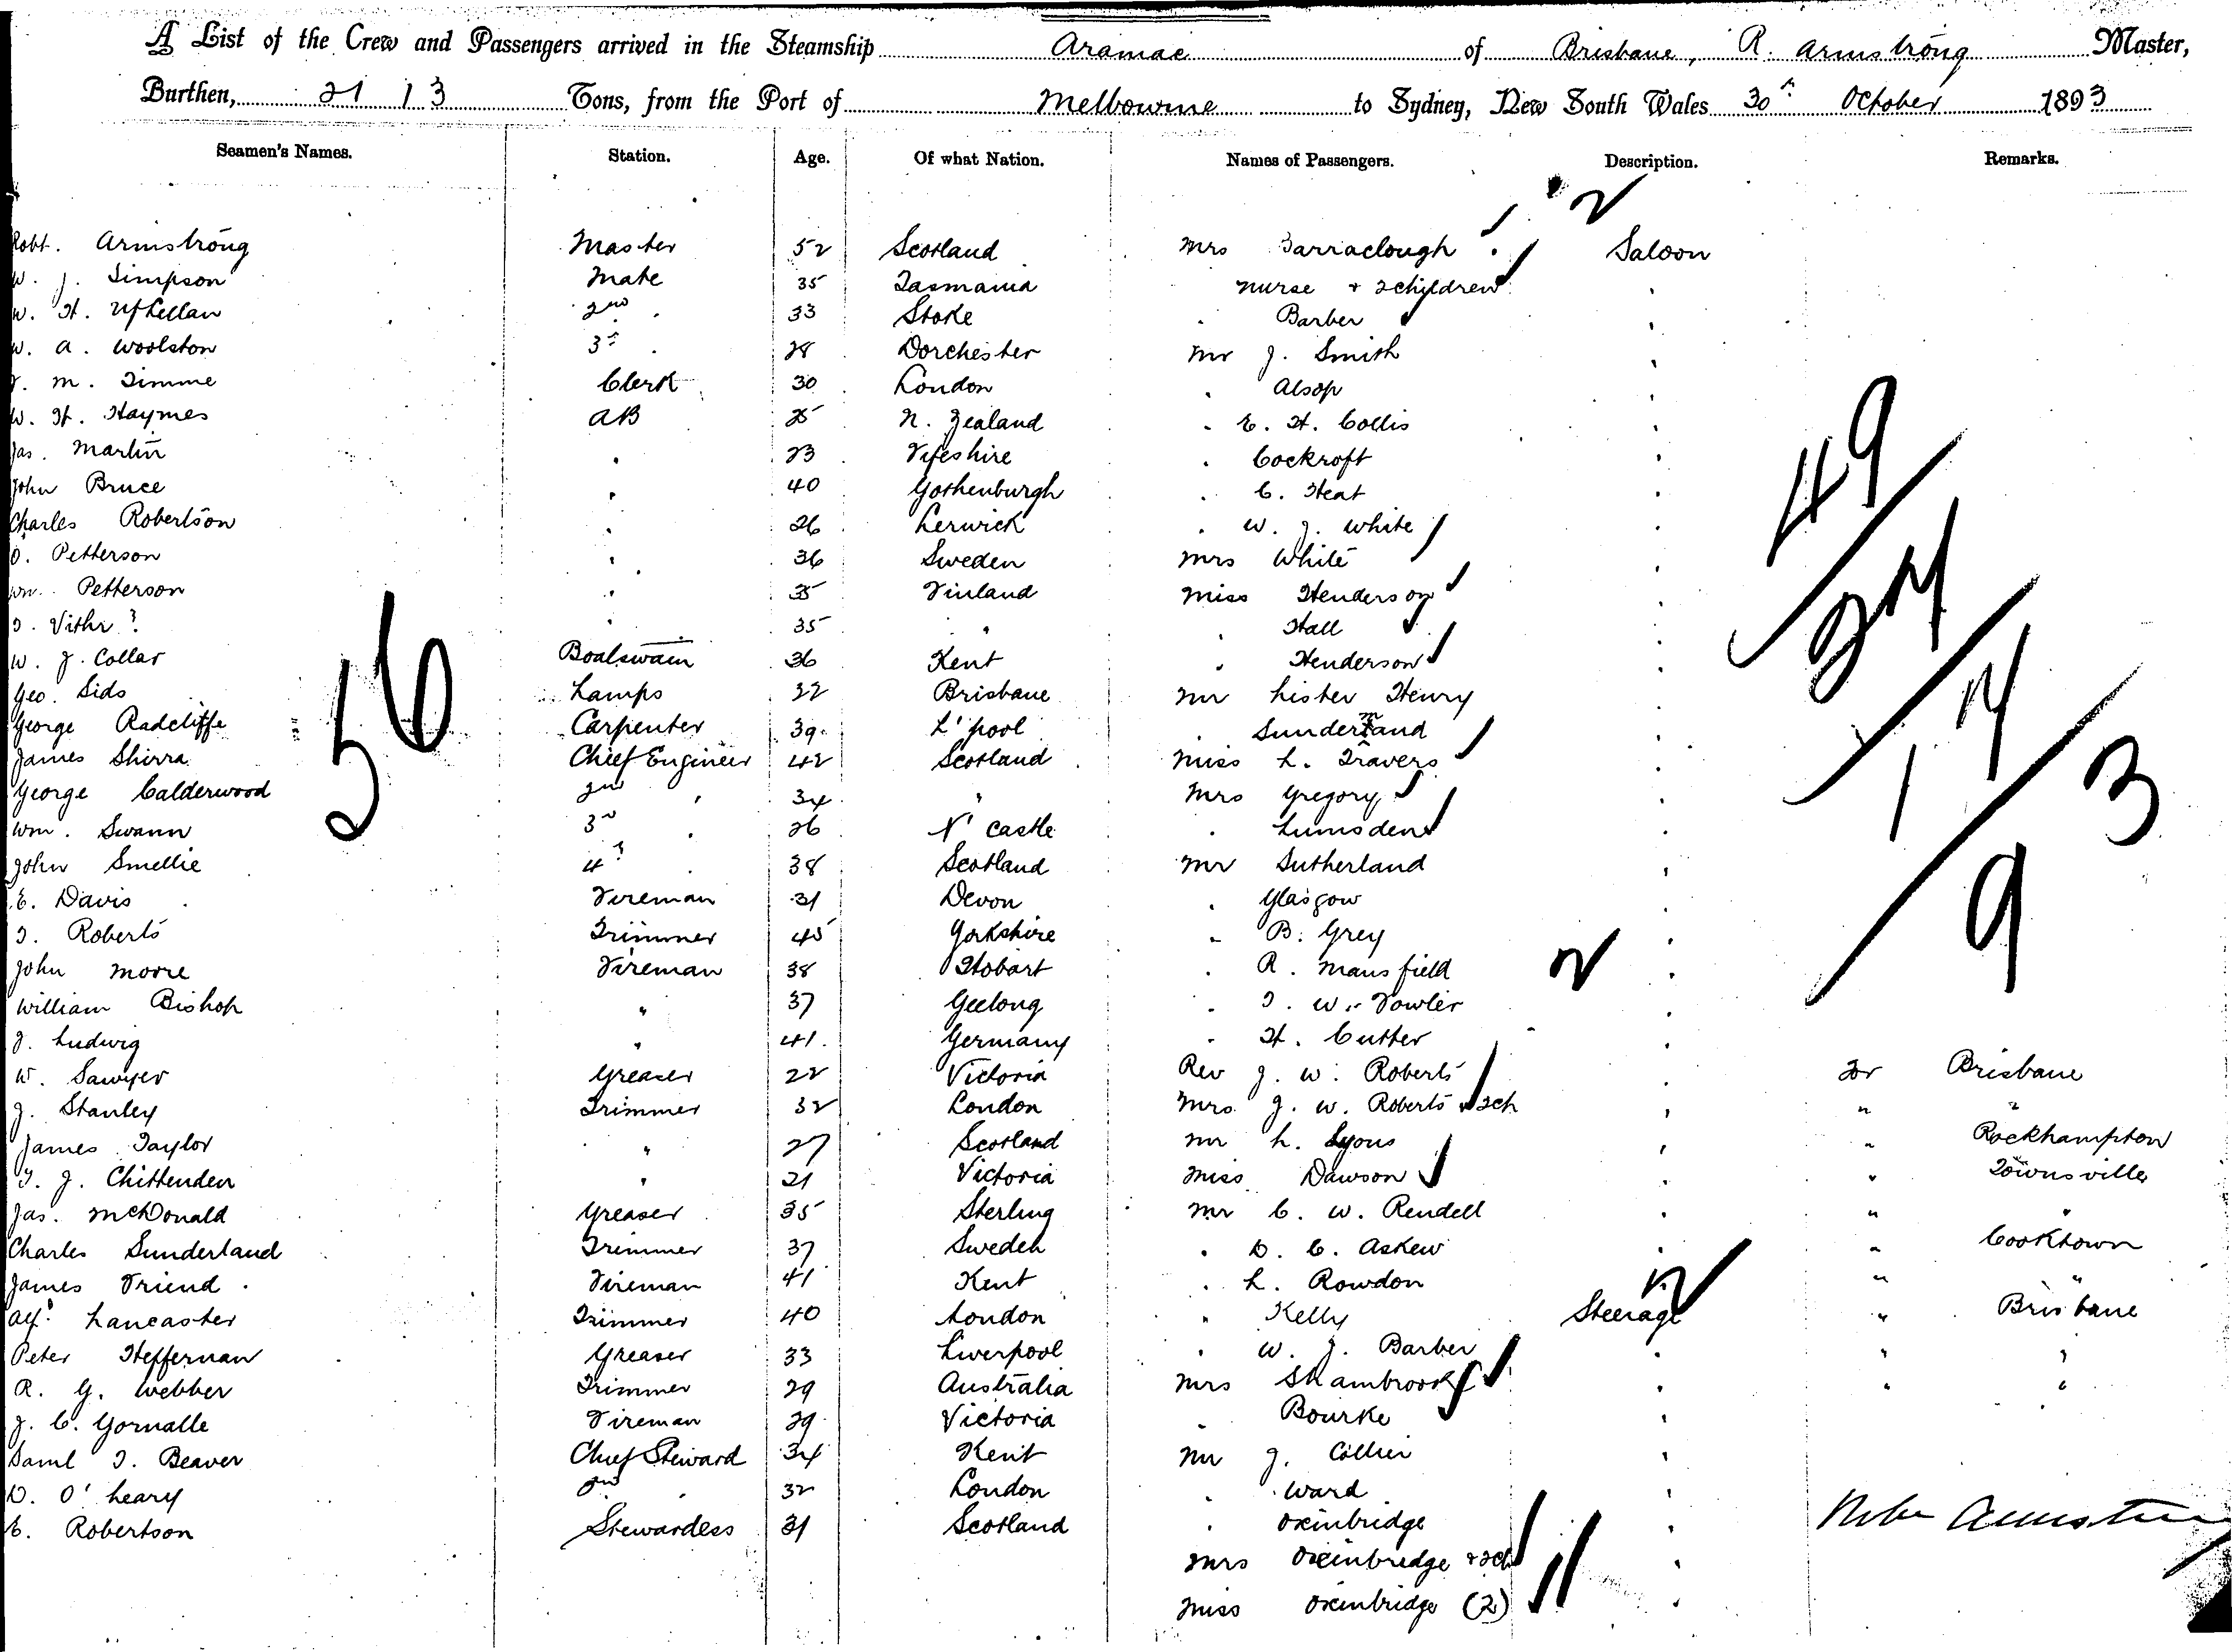 A List of the Crew and Passengers arrived in the Steamship Aramac of Brisbane, R. Armstrong Master,
Burthen, 2113 Tons, from the Port of Melbourne to Sydney, New South Wales 30th October 1893
Seamen's Names. Station. Age. Of what Nation. Names of Passengers. Description. Remarks.
Robt. Armstrong Master 52 Scotland Mrs Barraclough Saloon
W. J. Simpson Mate 35 Tasmania nurse + 2 children
W. H. McLellan 2nd 33 Stoke Barber
W. A. Woolston 3rd 28 Dorchester Mr J. Smith
J. M. Timme Clerk 30 London Alsop
W. H. Haymes AB 25 N. Zealand E. H. Collis
Jas. Martin 23 Fifeshire Cockroft
John Bruce 40 Gothenburgh C. Heat
Charles Robertson 26 Lerwick W. J. White
O. Petterson 36 Sweden Mrs White
Wm. Petterson 35 Finland Miss Henderson
Vithr ? 35 " Hall
W. J. Collar Boatswain 36 Kent Henderson
Geo. Sids Lamps 32 Brisbane Mr Lister Henry
George Radcliffe Carpenter 39 L'pool
James Shirra Chief Engineer 42 Scotland Miss L. Travers
George Calderwood 2nd " 34 " Mrs Gregory
Wm. Swann 3rd 26 N'castle Lumsden
John Smellie 4th 38 Scotland Mr Sutherland
E. Davis Fireman 31 Devon Glasgow
T. Roberts Trimmer 45 Yorkshire B. Grey
John Moore Fireman 38 Hobart R. Mansfield
William Bishop " 37 Geelong T. W. Fowler
J. Ludwig " 41 Germany H. Cutter
W. Sawyer Greaser 22 Victoria Rev J. W. Roberts For Brisbane
J. Stanley Trimmer 32 London Mrs J. W. Roberts + 2ch " "
James Taylor " 27 Scotland Mr L. Lyons " Rockhampton
T. J. Chittenden " 21 Victoria Miss Dawson " Townsville
Jas. McDonald Greaser 35 Sterling Mr C. W. Rendell " "
Charles Sunderland Trimmer 37 Sweden D. C. Askew " Cooktown
James Friend Fireman 41 Kent L. Rowdon " "
Alfd. Lancaster Trimmer 40 London " Kelly Steerage " Brisbane
Peter Heffernan Greaser 33 Liverpool W. J. Barber " "
R. G. Webber Trimmer 29 Australia Mrs Shambrook " "
J. C. Gornalle Fireman 29 Victoria Bourke
Saml T. Beaver Chief Steward 34 Kent Mr J. Collier
D. O'Leary 2nd " 32 London Ward
E. Robertson Stewardess 31 Scotland Oxenbridge
Mrs Oxenbridge + 2ch
Miss Oxenbridge (2)
56
49
24
14
9
3